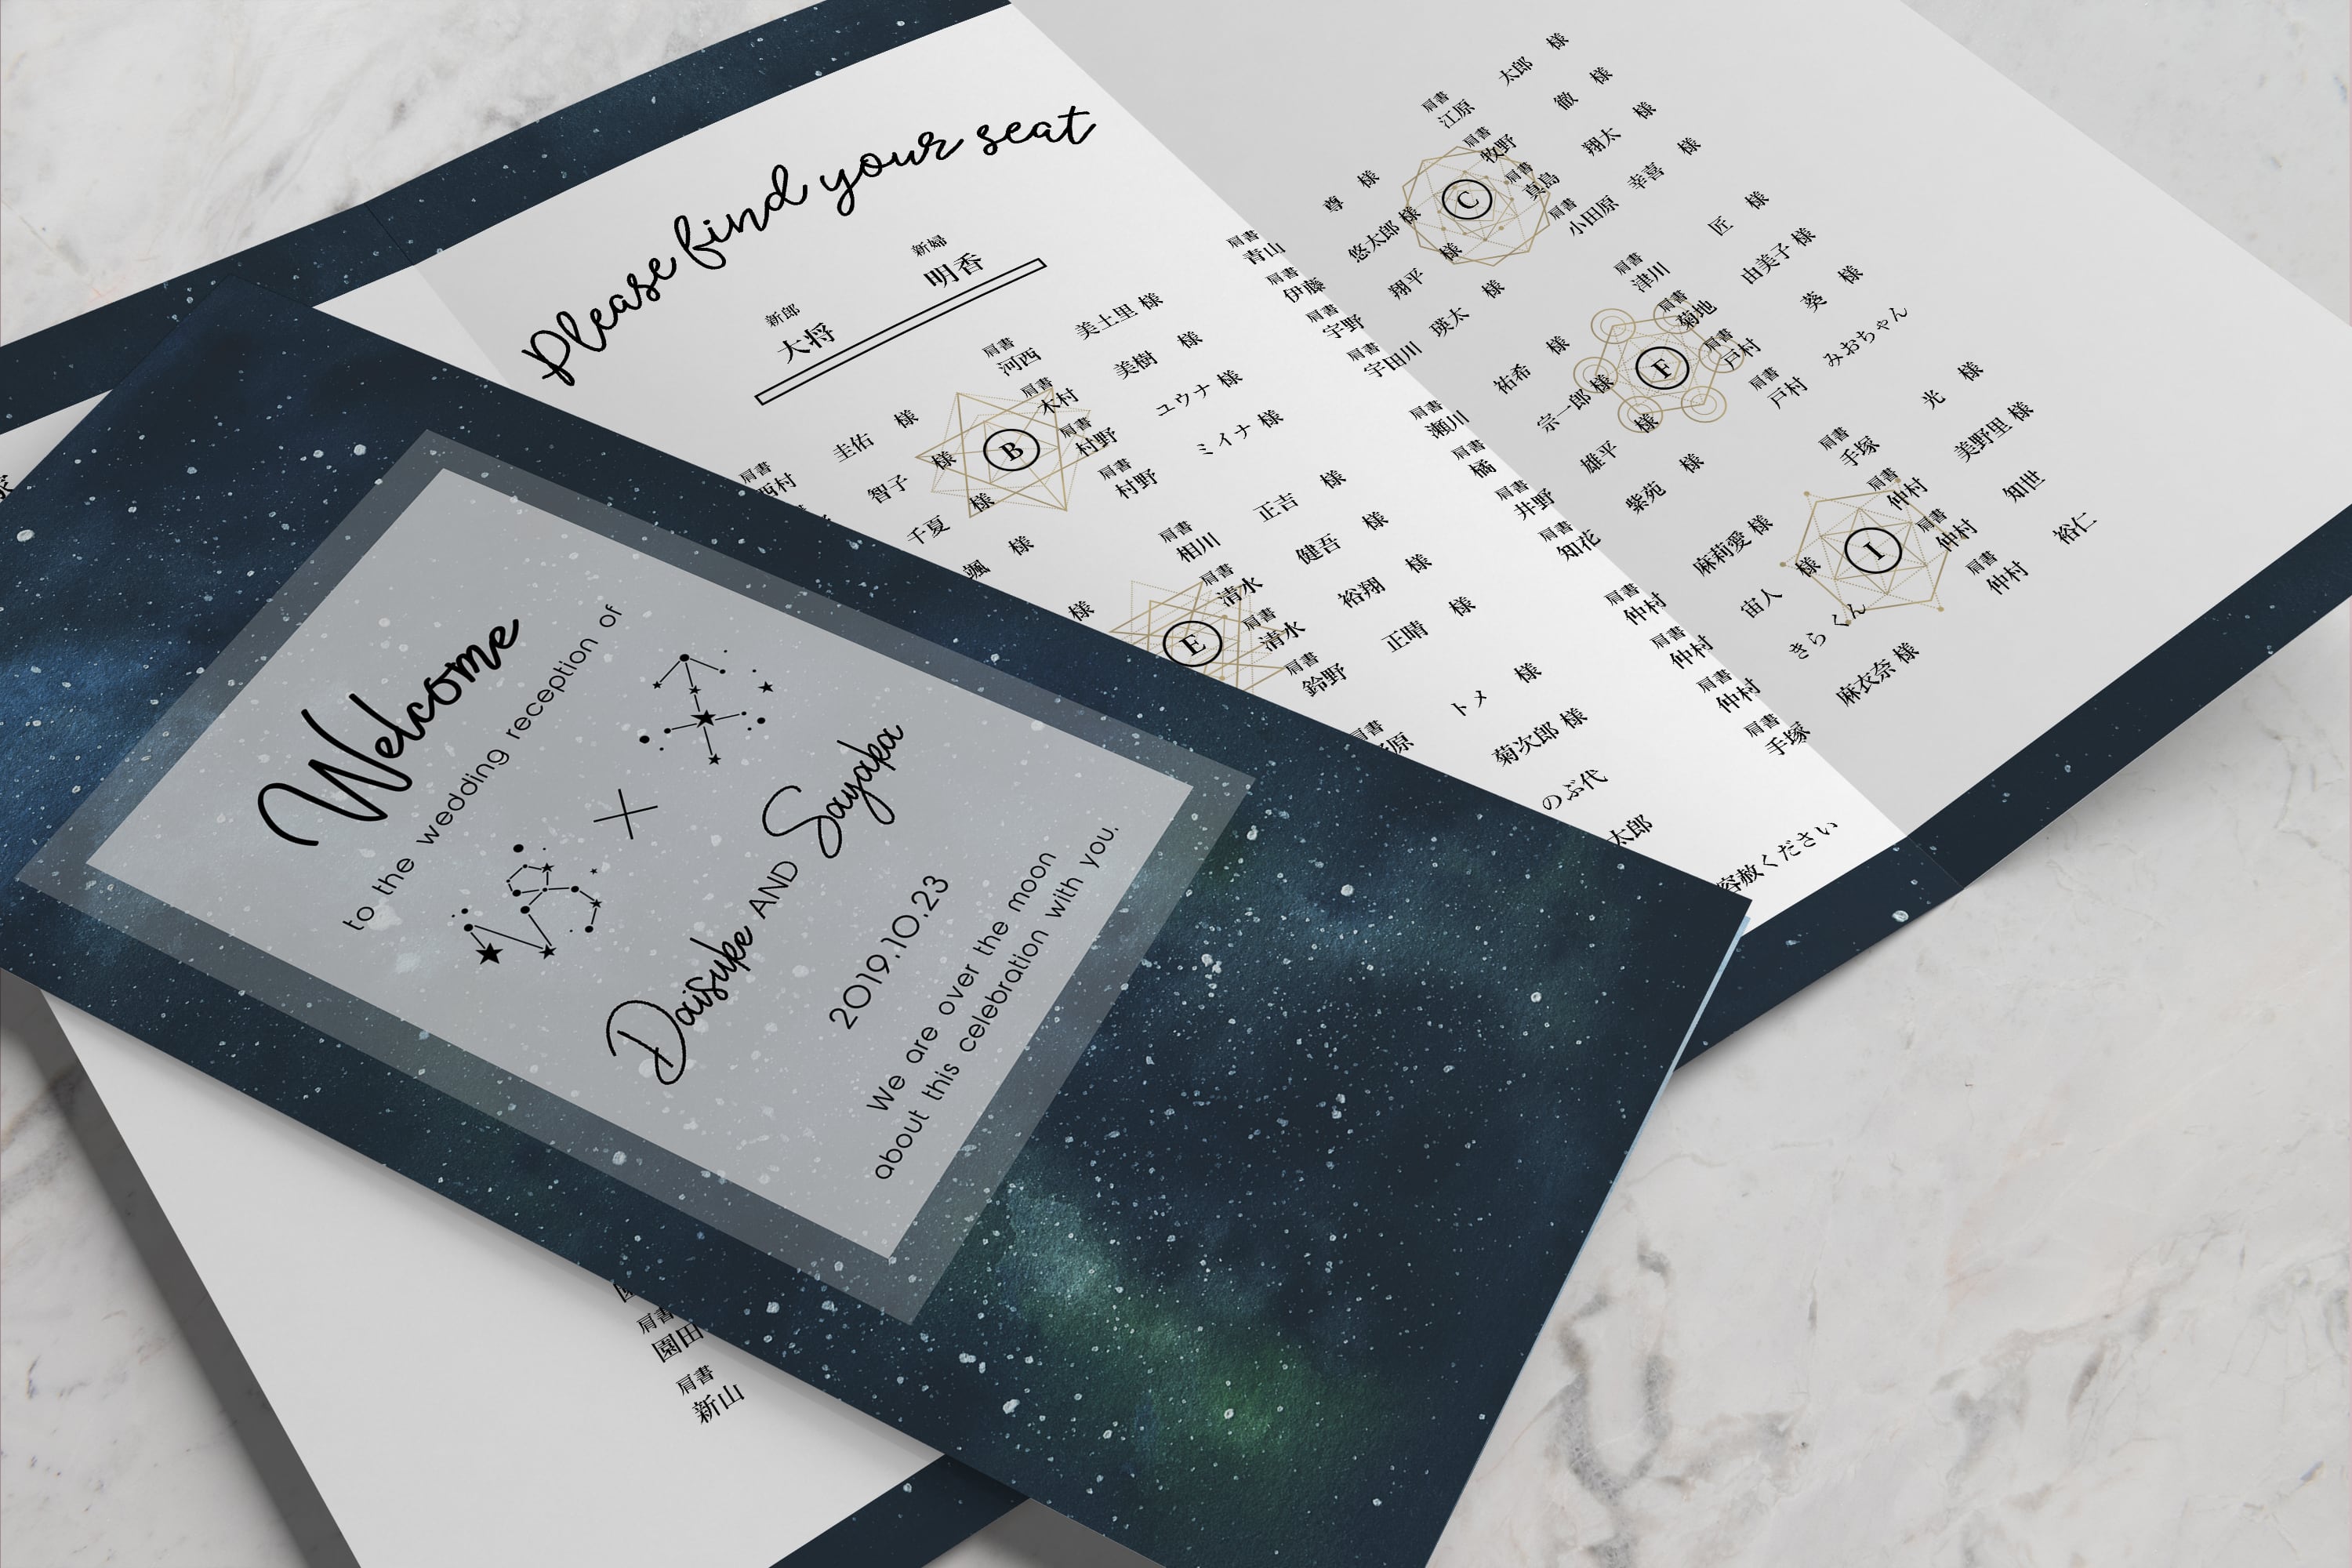 Welcome
to the wedding reception of
Daisuke AND Sayaka
2019.10.23
We are over the moon
about this celebration with you.
Please find your seat
新郎
大将
新婦
明香
B
圭佑 様
智子 様
千夏 様
颯 様
肩書
河西 美土里 様
肩書
木村 美樹 様
肩書
村野 ユウナ 様
肩書
村野 ミイナ 様
肩書
西村
E
様
肩書
相川 正吉 様
肩書
清水 健吾 様
肩書
清水 裕翔 様
肩書
鈴野 正晴 様
トメ 様
菊次郎 様
のぶ代
太郎
C
肩書
青山 尊 様
肩書
伊藤 悠太郎 様
肩書
宇野 翔平 様
肩書
宇田川 瑛太 様
肩書
江原 太郎 様
肩書
牧野 徹 様
肩書
真島 翔太 様
肩書
小田原 幸喜 様
F
肩書
瀬川 祐希 様
肩書
橘 宗一郎 様
肩書
井野 雄平 様
肩書
知花 紫苑 様
肩書
津川 匠 様
肩書
菊地 由美子 様
肩書
戸村 葵 様
肩書
戸村 みおちゃん
I
肩書
仲村 麻莉愛 様
肩書
仲村 宙人 様
肩書
仲村 きらくん
肩書
手塚 麻衣奈 様
肩書
手塚 光 様
肩書
仲村 美野里 様
肩書
仲村 知世
肩書
仲村 裕仁
容赦ください
肩書
園田
肩書
新山